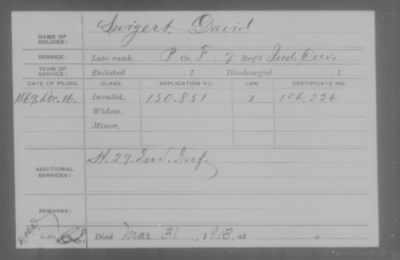 NAME OF SOLDIER: Swigert David
SERVICE: Late rank, P Co. F, 7 Reg't Ind. Cav.
TERM OF SERVICE: Enlisted , 1 Discharged , 1
DATE OF FILING. CLASS. APPLICATION NO. LAW. CERTIFICATE NO.
1869 Nov. 16. Invalid, 150.851 106.226
Widow,
Minor,
ADDITIONAL SERVICES: H. 29. Ind. Inf.
REMARKS:
Died Mar 31, 19 , at